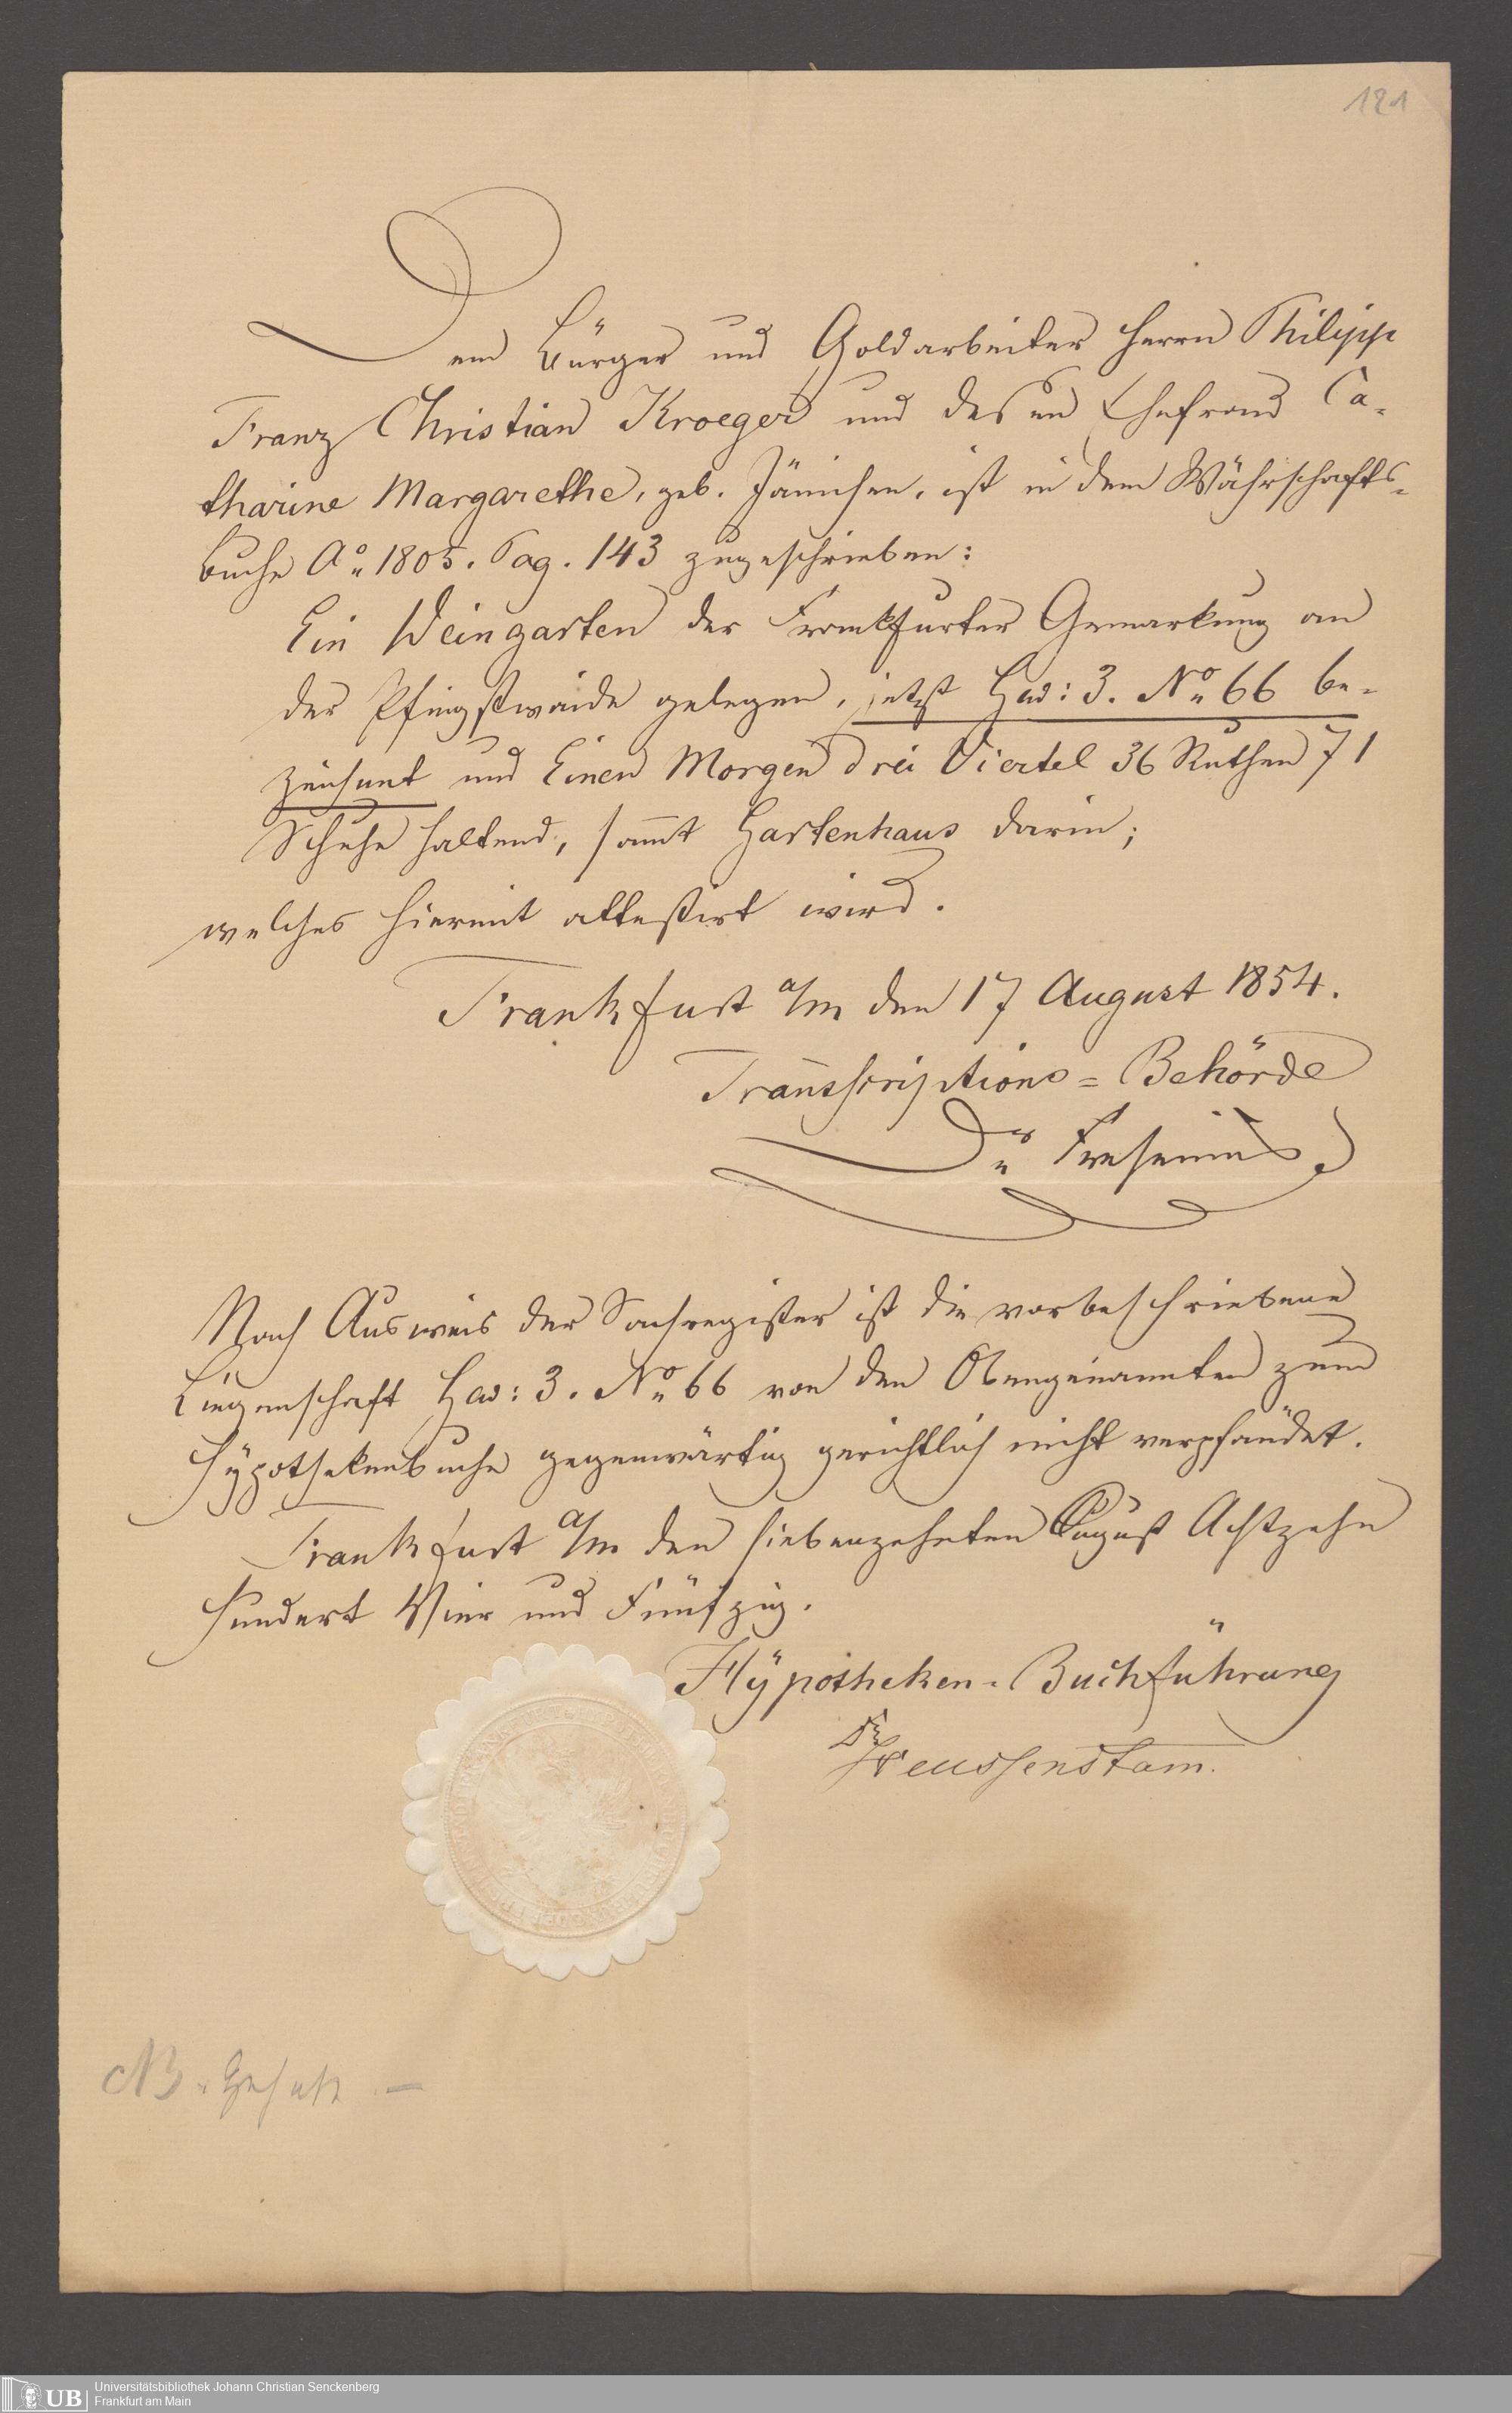 121
Dem Bürger und Goldarbeiter Herrn Philipp
Franz Christian Kroeger und dessen Ehefrau Ca-
tharine Margarethe, geb. Jänichen, ist in dem Währschafts-
buche Ao 1805. Pag. 143 zugeschrieben:
Ein Weingarten der Frankfurter Gemarkung an
der Pfingstwaide gelegen, jetzt Gew: 3. No 66 be-
zeichnet und Einen Morgen drei Viertel 36 Ruthen 71
Schuhe haltend, sam̄t Gartenhaus darin;
welches hiermit attestirt wird.
Frankfurt a/m den 17 August 1854.
Transscriptions=Behörde
Dr Fresenius
Nach Ausweis der Sachregister ist die vorbeschriebene
Liegenschaft Gew: 3. No 66 von den Obengenannten zum
Hÿpothekenbuche gegenwärtig gerichtlich nicht verpfändet.
Frankfurt a/m den siebenzehnten August Achtzehn
hundert Vier und Fünfzig.
Hÿpotheken-Buchführung
Dr Heussenstam.
NB.
UB
Universitätsbibliothek Johann Christian Senckenberg
Frankfurt am Main